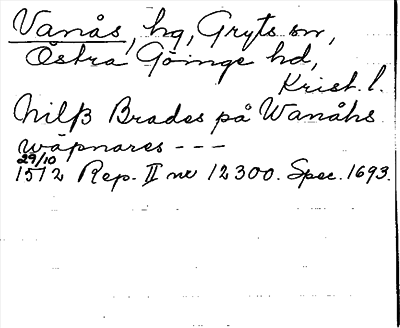 Vanås, hg, Gryts sn,
Östra Göinge hd,
Krist. l.
Nilß Brades på Wanåhs
wäpnares ---
29/10
1512 Rep. II nr 12300. Spec. 1693.